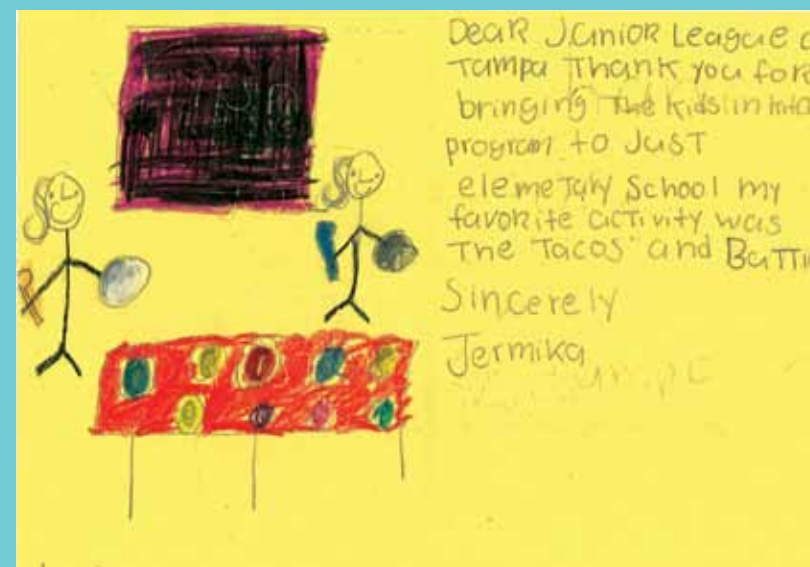 Dear Junior League o
Tampa Thank you for
bringing The kids in
program to Just
elemetary School my
favorite activity was
The Tacos and Butti
Sincerely
Jermika